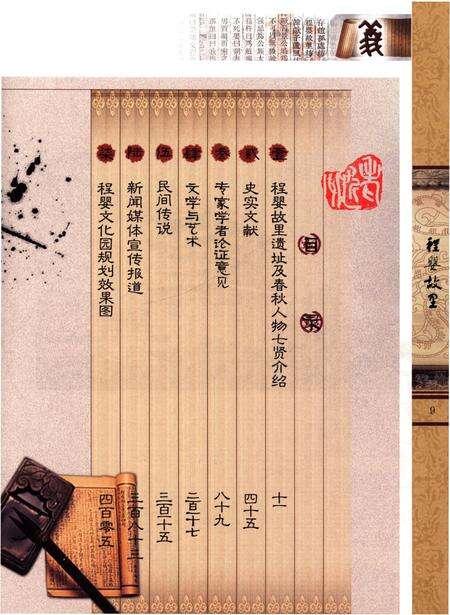 義
程婴故里
9
目录
壹 程婴故里遗址及春秋人物七贤介绍 十一
贰 史实文献 四十五
叁 专家学者论证意见 八十九
肆 文学与艺术 二百十七
伍 民间传说 三百十五
陆 新闻媒体宣传报道 三百八十三
柒 程婴文化园规划效果图 四百零五